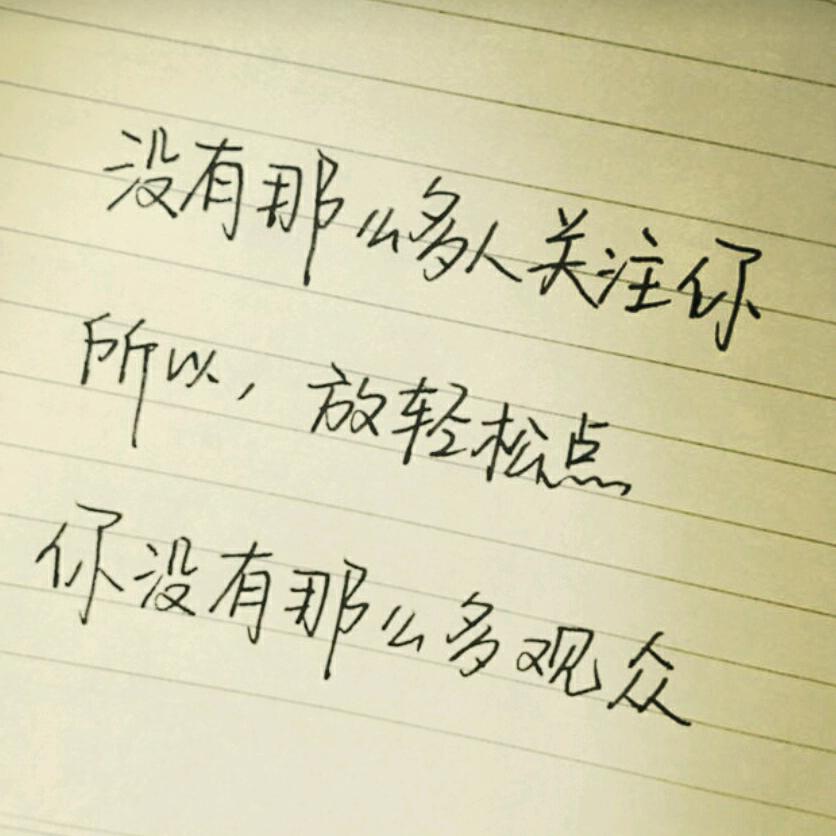 没有那么多人关注你
所以，放轻松点
你没有那么多观众